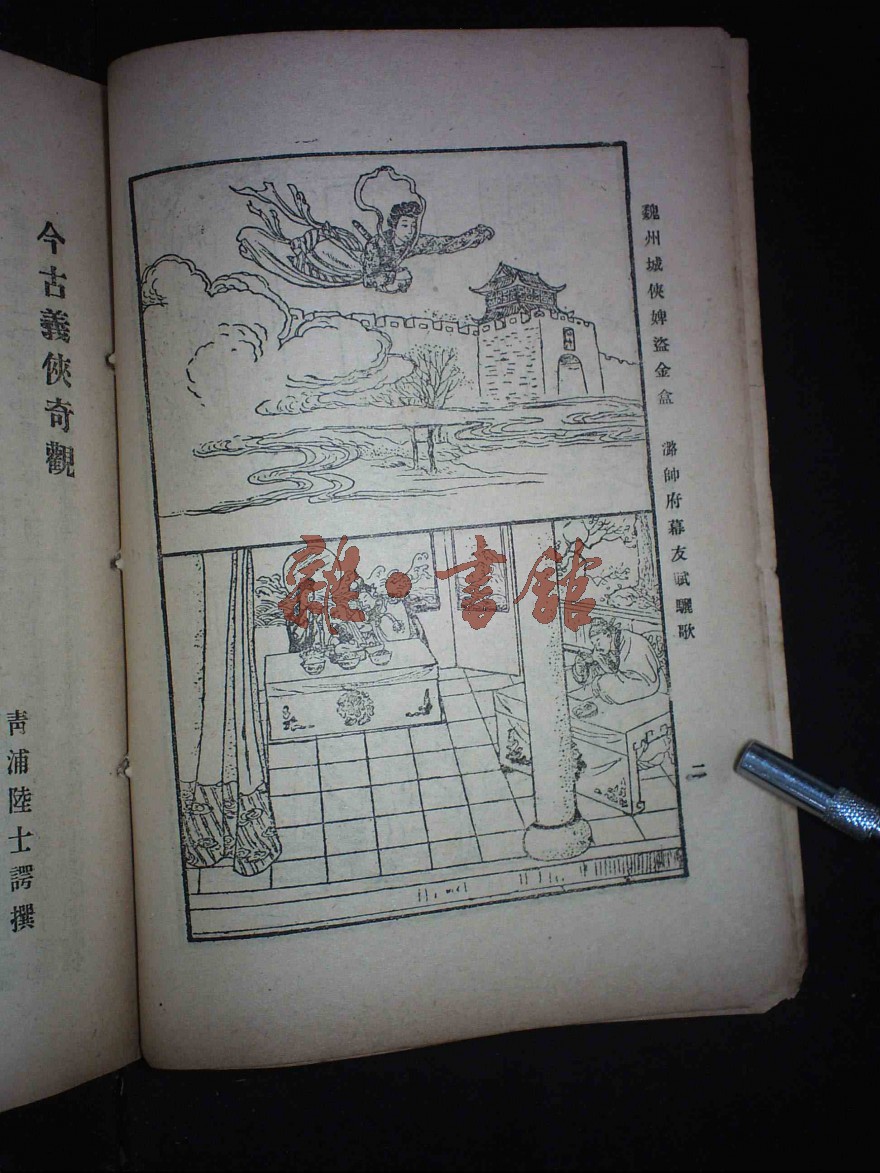 魏州城俠婢盜金盒　潞帥府幕友賦驪歌
二
雜·書館
今古義俠奇觀
青浦陸士諤撰